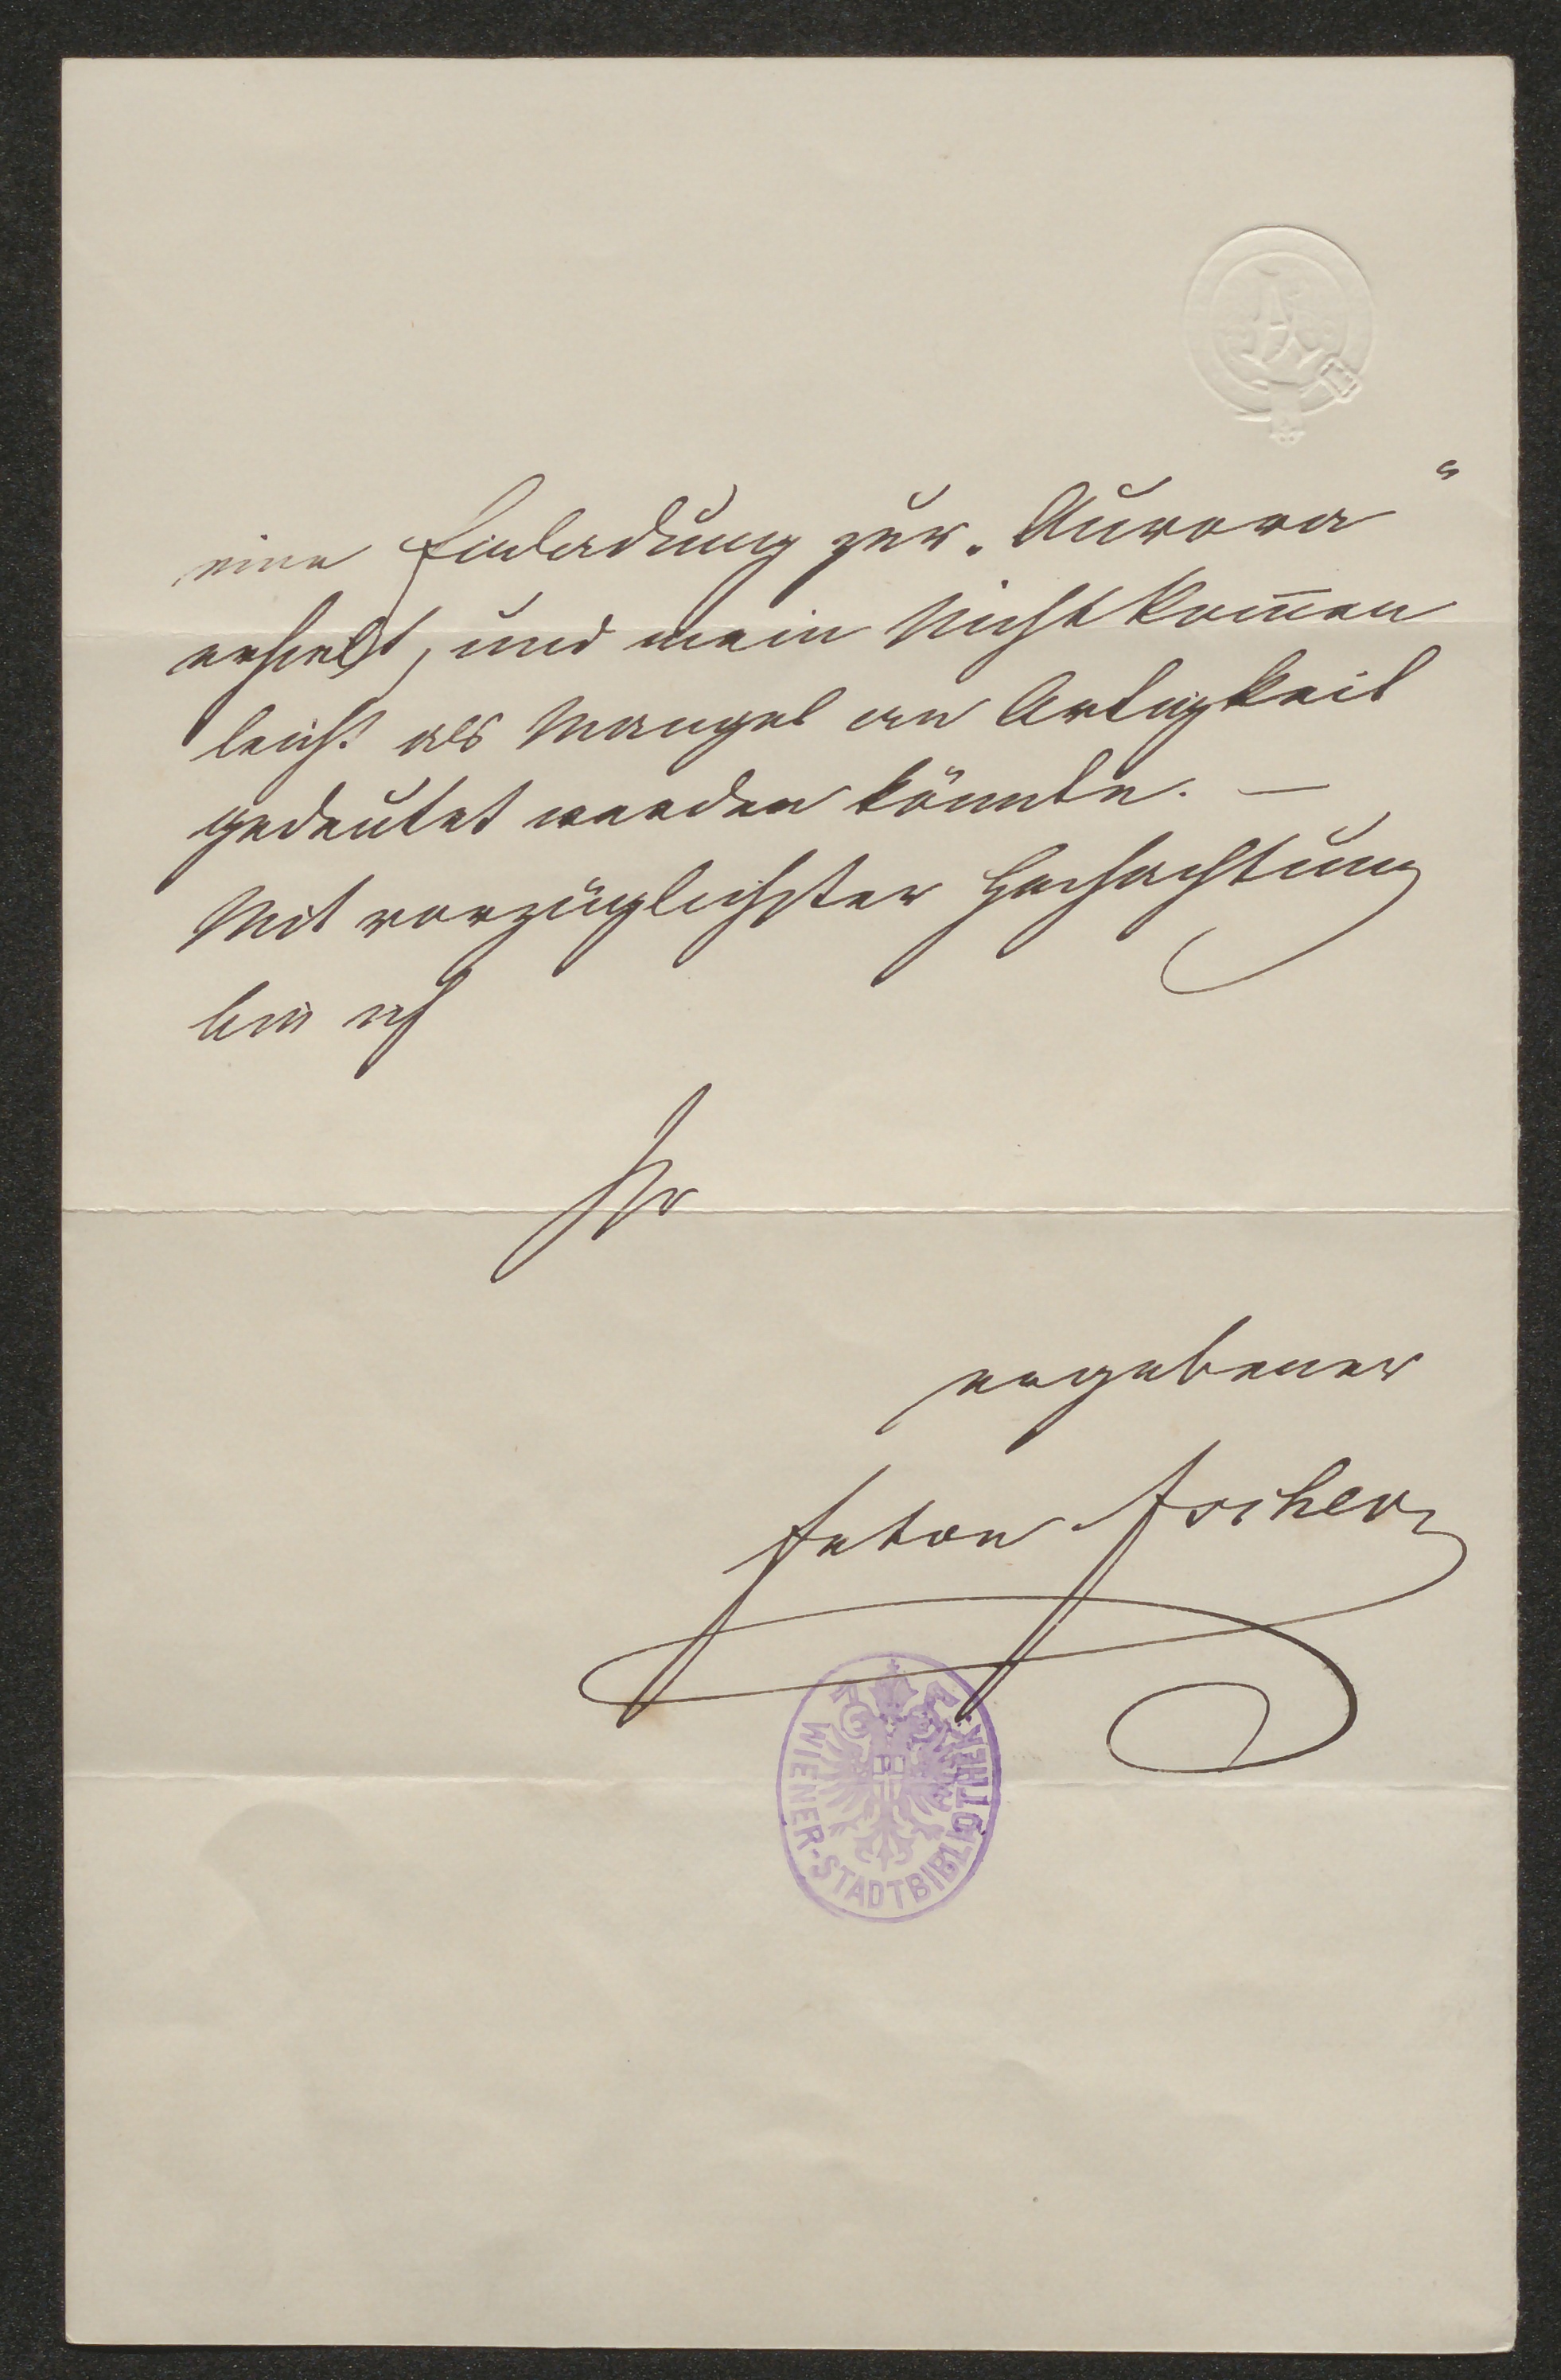 eine Einladung zur „Aurora“
erhielt, und mein Nichtkom̄en
leicht als Mangel an Artigkeit
gedeutet werden könnte. —
Mit vorzüglichster Hochachtung
bin ich
Ihr
ergebener
Anton Ascher
WIENER-STADTBIBLIOTHEK